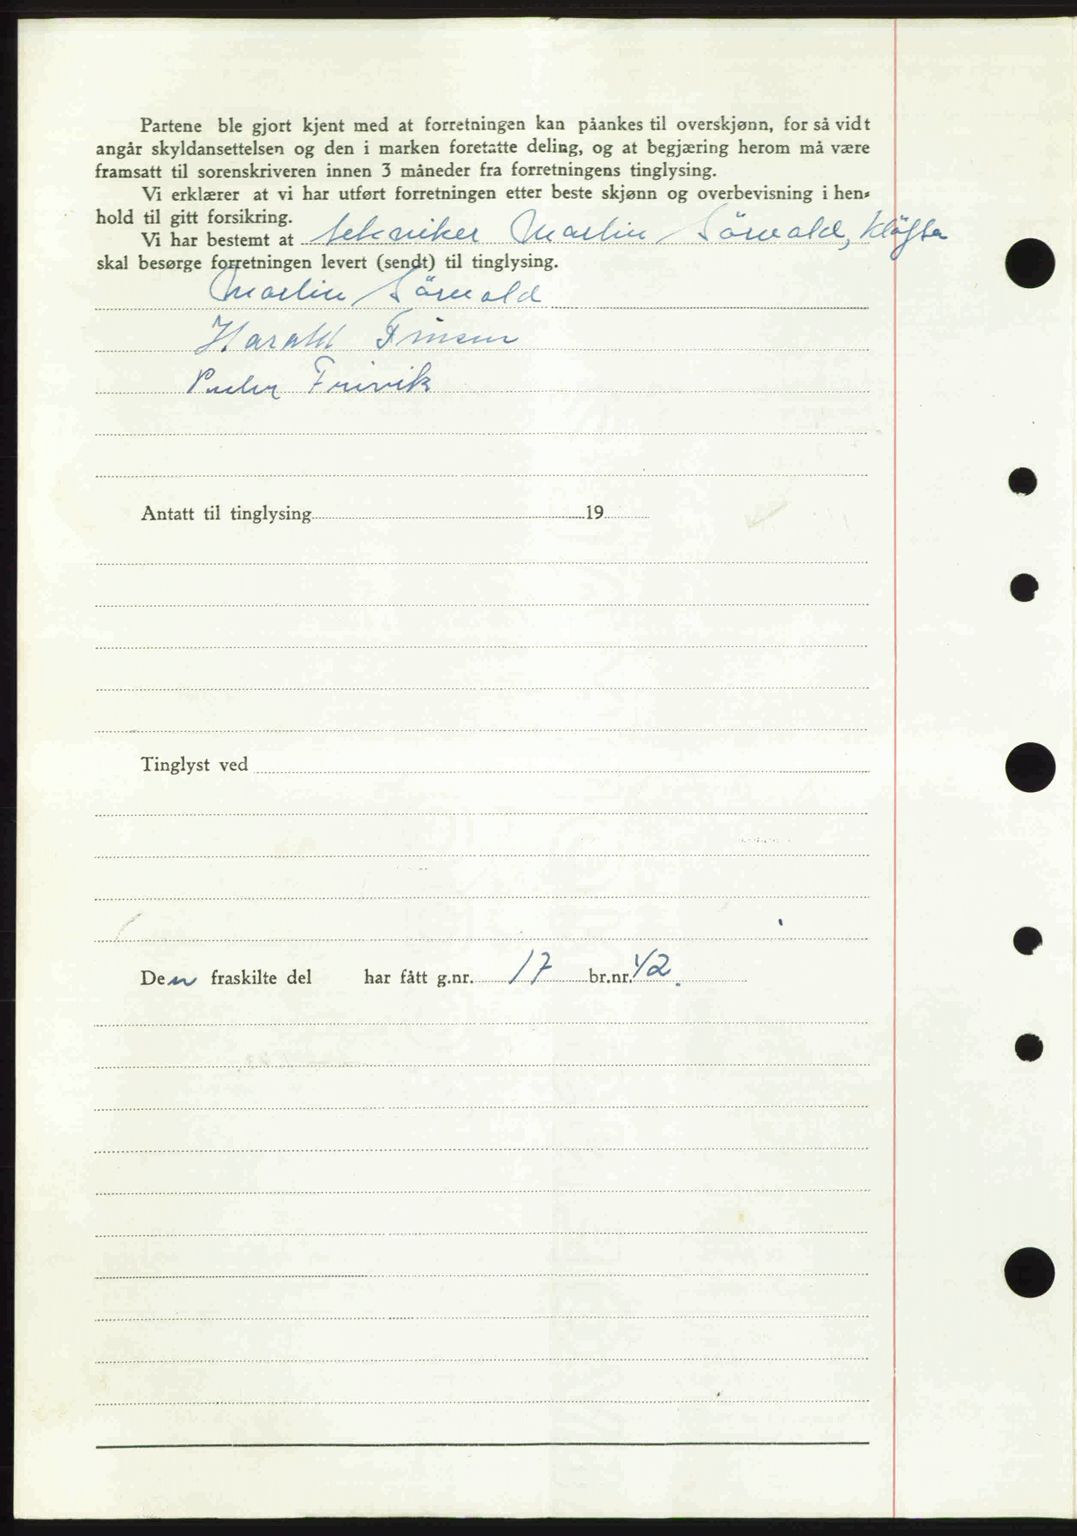 Partene ble gjort kjent med at forretningen kan påankes til overskjønn, for så vidt
angår skyldansettelsen og den i marken foretatte deling, og at begjæring herom må være
framsatt til sorenskriveren innen 3 måneder fra forretningens tinglysing.
Vi erklærer at vi har utført forretningen etter beste skjønn og overbevisning i hen-
hold til gitt forsikring.
Vi har bestemt at tekniker Martin Sörvald, Kløfta
skal besørge forretningen levert (sendt) til tinglysing.
Martin Sörvald
Harald Finsen
Peder
Antatt til tinglysing 19
Tinglyst ved
Den fraskilte del har fått g.nr. 17 br.nr. 42.